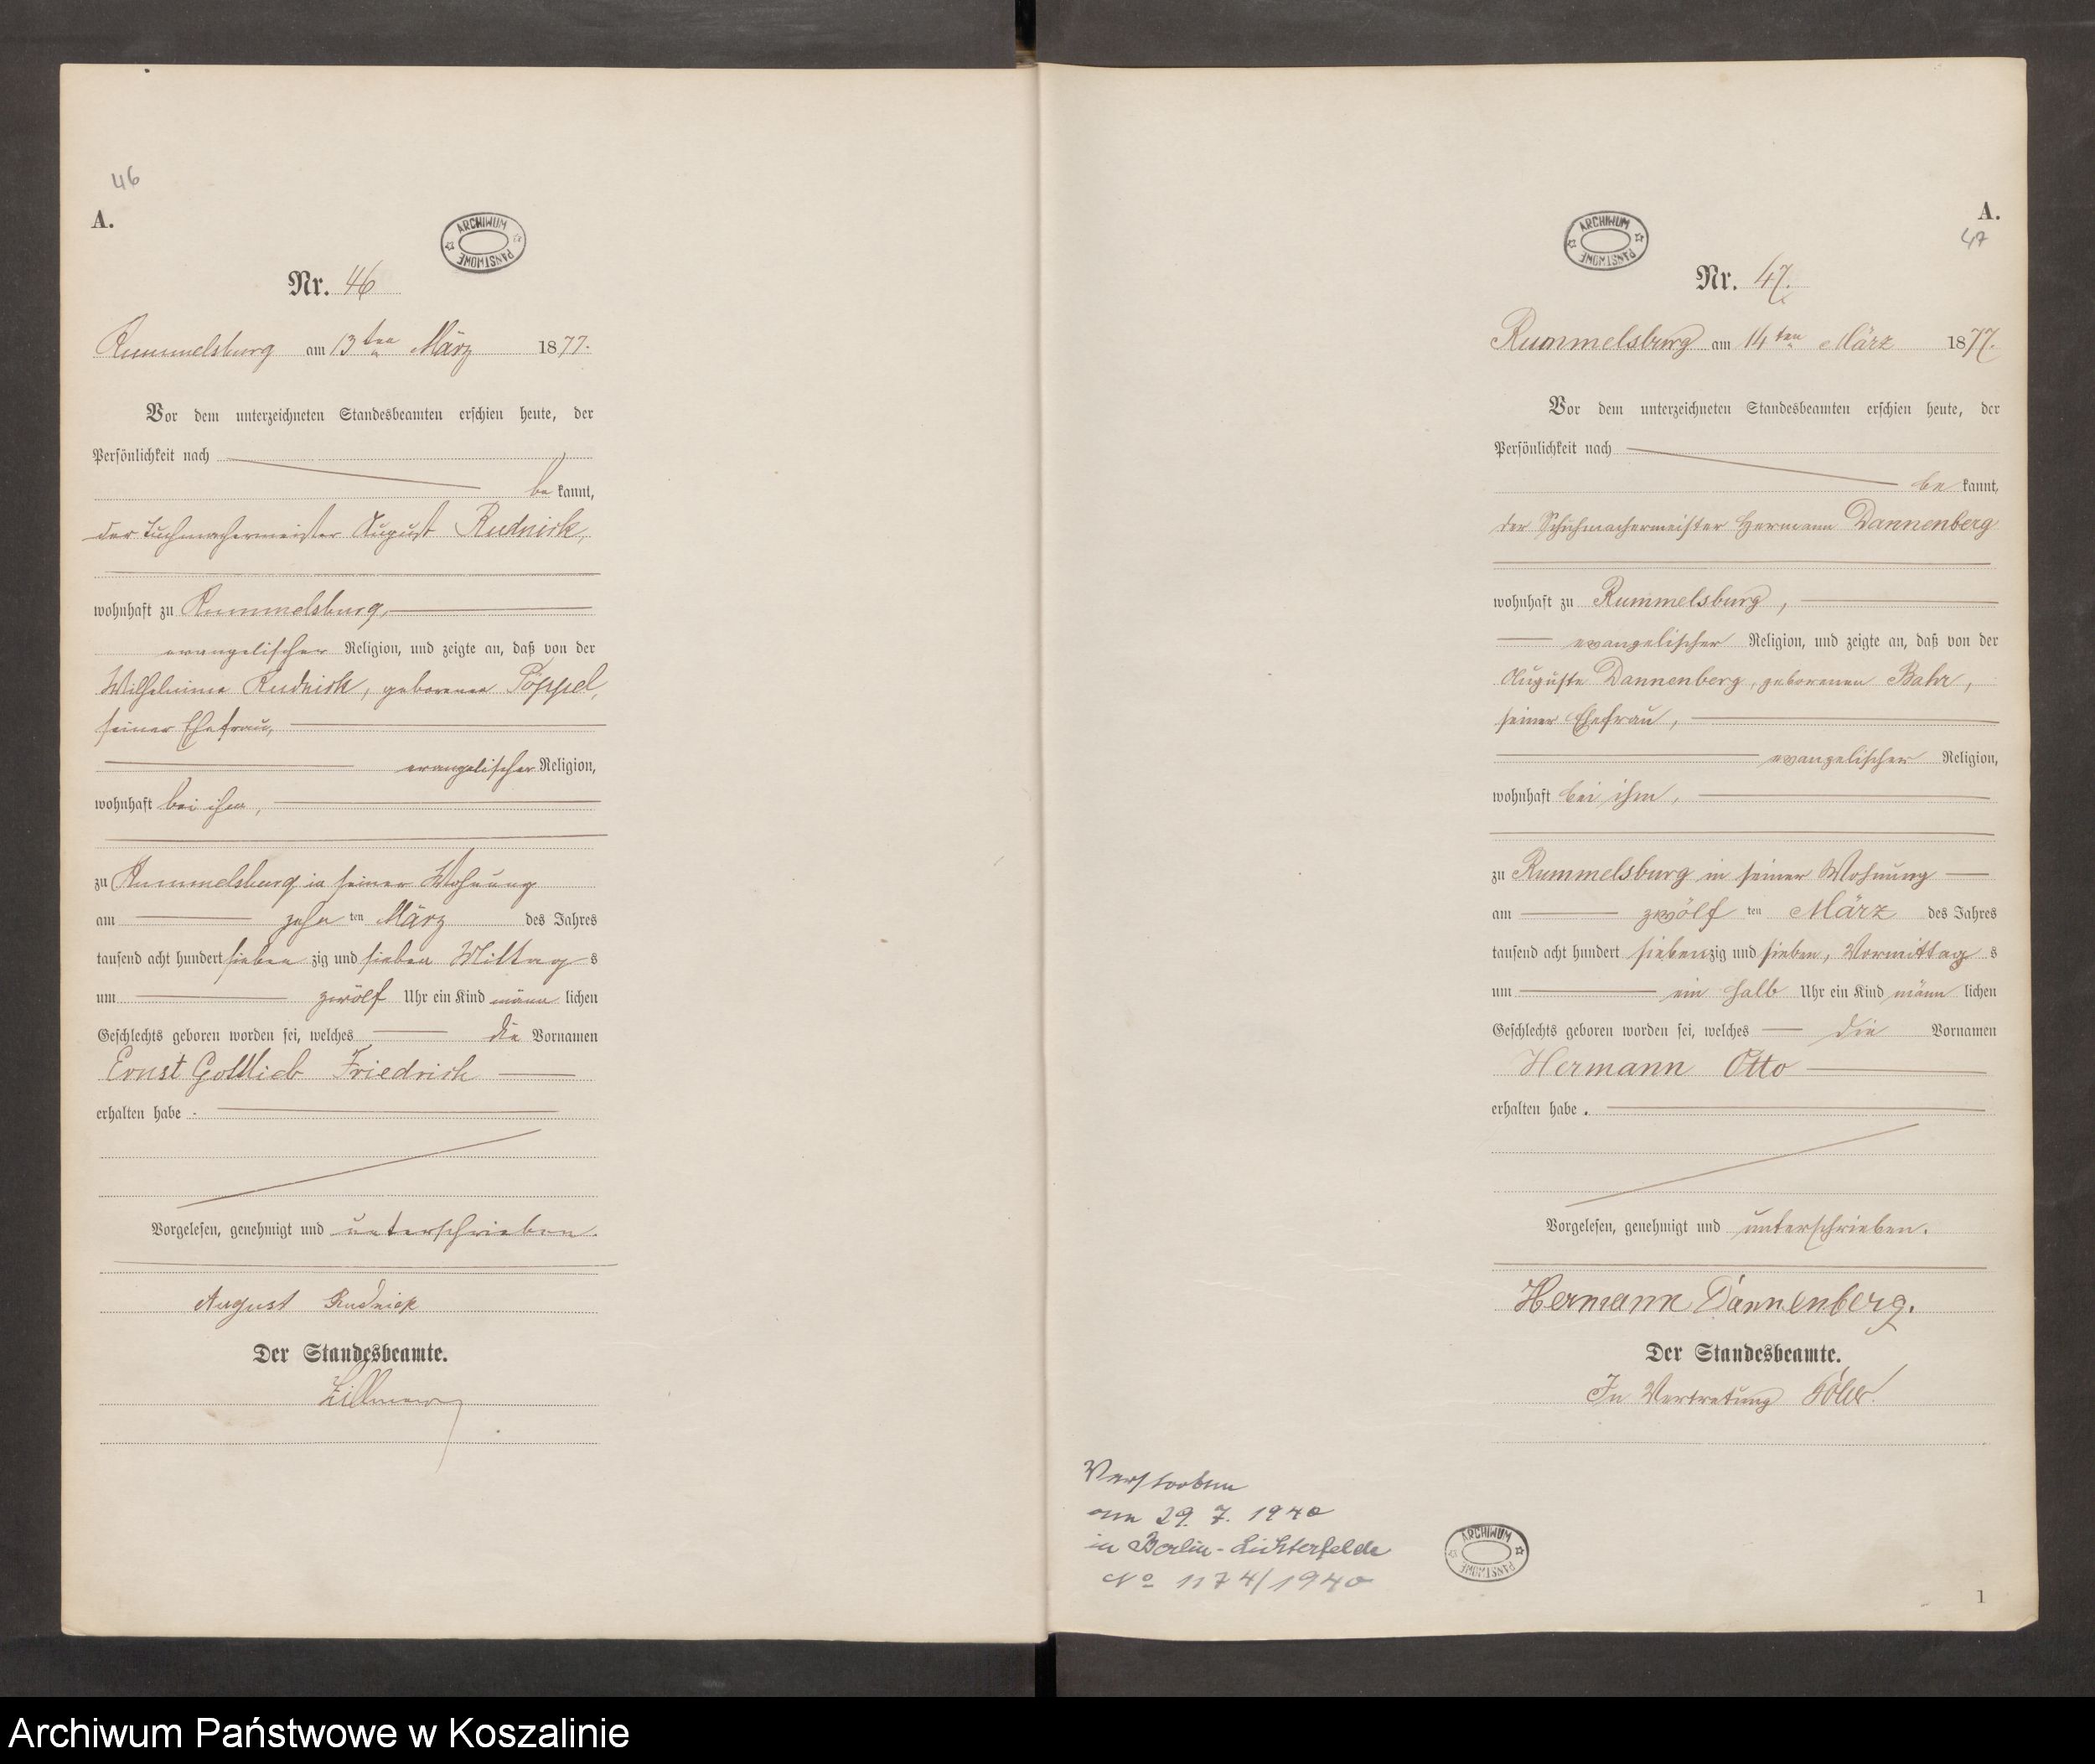 46
A.
ARCHIWUM PAŃSTWOWE
Nr. 46
Rummelsburg am 13ten März 1877.
Vor dem unterzeichneten Standesbeamten erschien heute, der
Persönlichkeit nach
be kannt,
der Tuchmachermeister August Rudnick,
wohnhaft zu Rummelsburg,
evangelischer Religion, und zeigte an, daß von der
Wilhelmine Rudnick, geborenen Pöppel,
seiner Ehefrau,
evangelischer Religion,
wohnhaft bei ihm,
zu Rummelsburg in seiner Wohnung
am zehn ten März des Jahres
tausend acht hundert sieben zig und sieben Mittag s
um zwölf Uhr ein Kind männ lichen
Geschlechts geboren worden sei, welches die Vornamen
Ernst Gottlieb Friedrich
erhalten habe.
Vorgelesen, genehmigt und unterschrieben.
August Rudnick
Der Standesbeamte.
A.
47
ARCHIWUM PAŃSTWOWE
Nr. 47.
Rummelsburg am 14ten März 1877.
Vor dem unterzeichneten Standesbeamten erschien heute, der
Persönlichkeit nach
be kannt,
der Schuhmachermeister Hermann Dannenberg
wohnhaft zu Rummelsburg,
evangelischer Religion, und zeigte an, daß von der
Auguste Dannenberg, geborenen Bahr,
seiner Ehefrau,
evangelischer Religion,
wohnhaft bei ihm,
zu Rummelsburg in seiner Wohnung
am zwölf ten März des Jahres
tausend acht hundert siebenzig und sieben, Vormittag s
um ein halb Uhr ein Kind männ lichen
Geschlechts geboren worden sei, welches die Vornamen
Hermann Otto
erhalten habe.
Vorgelesen, genehmigt und unterschrieben.
Hermann Dannenberg.
Der Standesbeamte.
In Vertretung
Verstorben
am 29. 7. 1940
in Berlin-Lichterfelde
No 1174/1940
ARCHIWUM PAŃSTWOWE
1
Archiwum Państwowe w Koszalinie